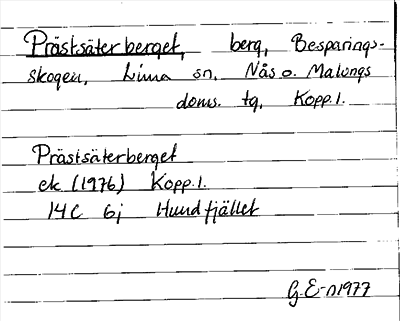 Prästsäterberget, berg, Besparings-
skogen, Lima sn, Nås o. Malungs
doms. tg, Kopp.l.
Prästsäterberget
ek (1976) Kopp.l.
14C 6j Hundfjället
G.E-n 1977